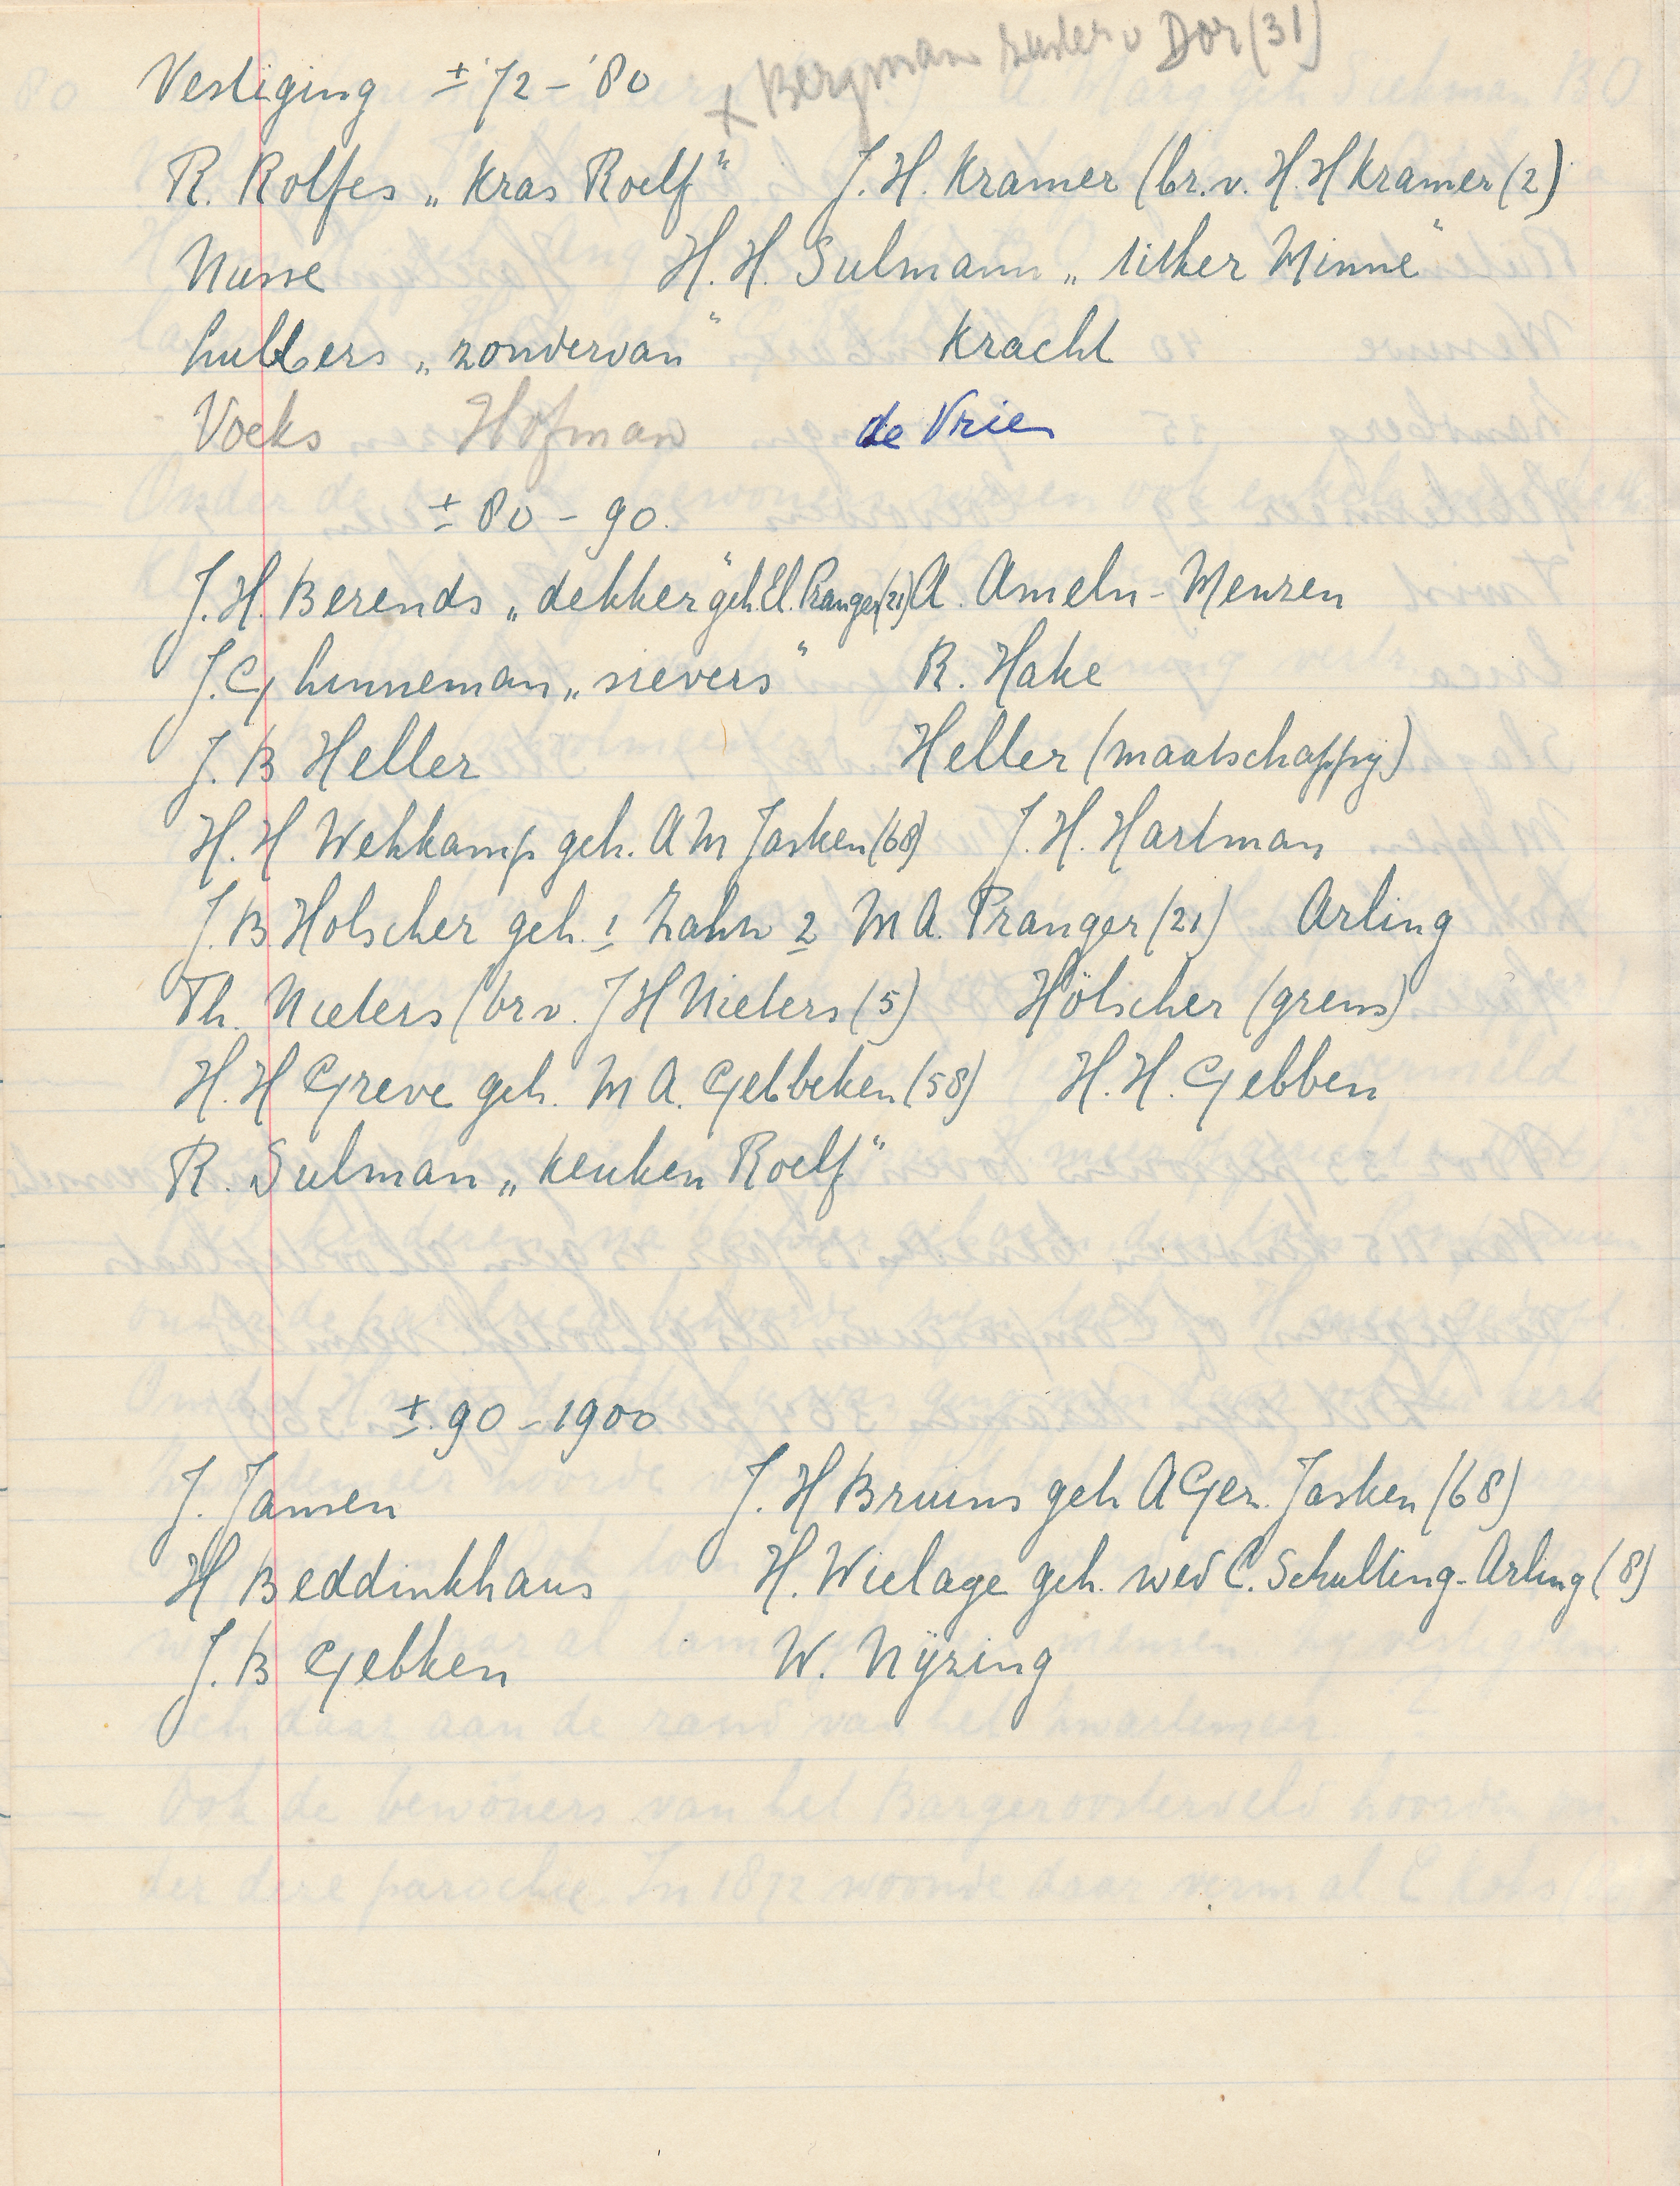 x Bergman zuster v Dor (31)
Vestiging ± '72 - '80
R. Rolfes „Kras Roelf" J. H. Kramer (br. v. H. H Kramer (2)
Nusse H. H. Sulmann „ Minne"
Lubbers „zondervan" Kracht
Voeks Hofman de Vries
± 80 - 90.
J. H. Berends „dekker" geh. El. Pranger (21) A. Ameln - Menzen
J. G Linneman „sievers" R. Hake
J. B Heller Heller (maatschappij)
H. H Wehkamp geh. A M Jasken (68) J. H. Hartman
J. B Holscher geh. 1 Zahn 2 M A. Pranger (21) Arling
Th. Nieters (br v. J H Nieters (5) Hölscher (grens)
H. H Greve geh. M A. Gebbeken (58) H. H. Gebben
R. Sulman „keuken Roelf"
± 90 - 1900
J. Jansen J. H Bruins geh A Ger. Jasken (68)
H Beddinkhaus H. Wielage geh. wed C. Schulting - Arling (8)
J. B Gebken W. Nijzing